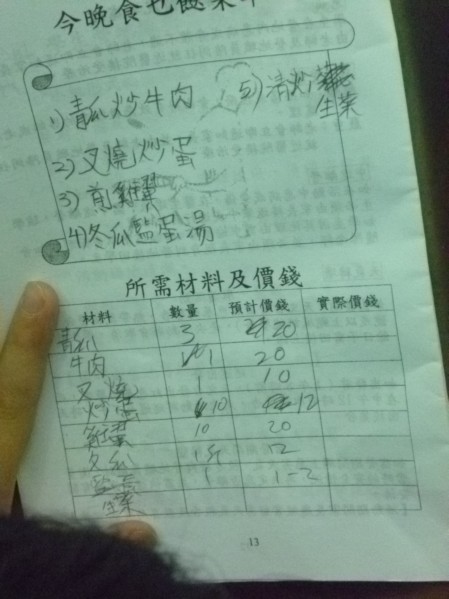 今晚食乜餸菜
1) 青瓜炒牛肉
5) 清炒
生菜
2) 叉燒炒蛋
3) 煎雞翼
4) 冬瓜監蛋湯
所需材料及價錢
材料 數量 預計價錢 實際價錢
青瓜 3 20
牛肉 1 20
叉燒 1 10
10 12
10 20
冬瓜 12
1 1-2
生菜
13